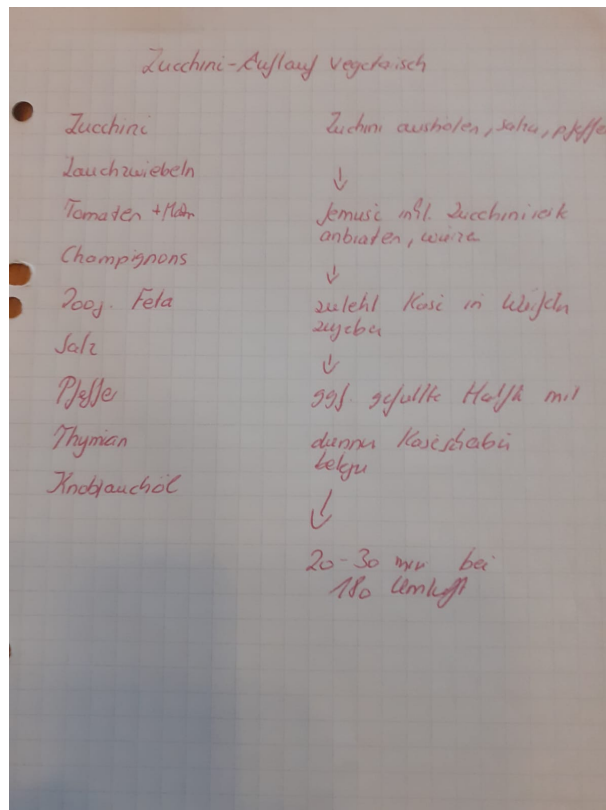 Zucchini-Auflauf vegetarisch
Zucchini
Lauchzwiebeln
Tomaten +
Champignons
200g. Feta
Salz
Pfeffer
Thymian
Knoblauchöl
Zuchini aushölen, salzen, pfeffe
↓
Gemüse inkl. Zucchini
anbraten, würzen
↓
zuletzt Käse in Würfeln
zugeben
↓
ggf. gefüllte Hälfte mit
dünnen Käsescheiben
belegen
↓
20-30 min bei
180 Umluft